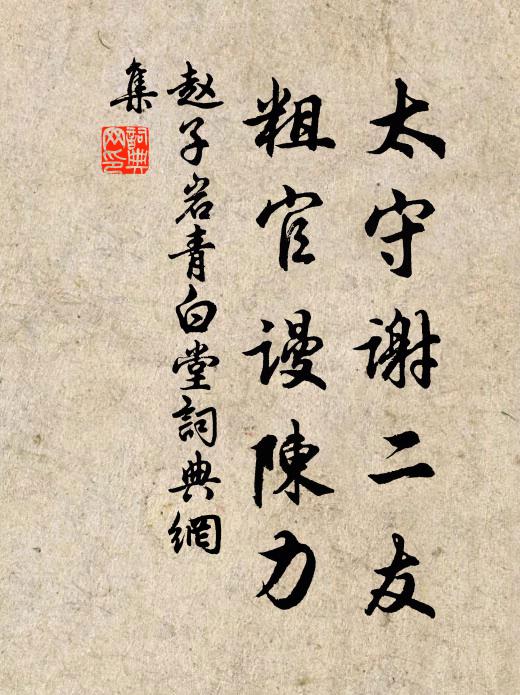 太守谢二友
粗官谩陳力
赵子岩青白堂詞典網
集
詞典網印